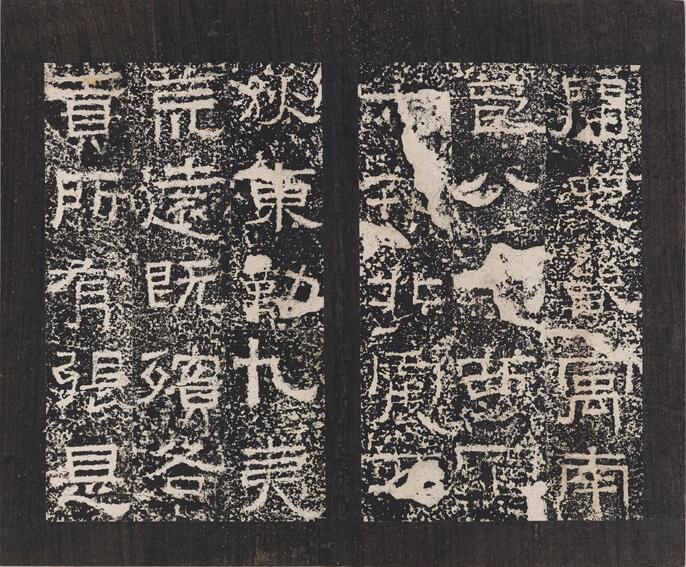 開定畿寓南
苞八
北震五
狄東勤九夷
荒遠既殯各
貢所有張是